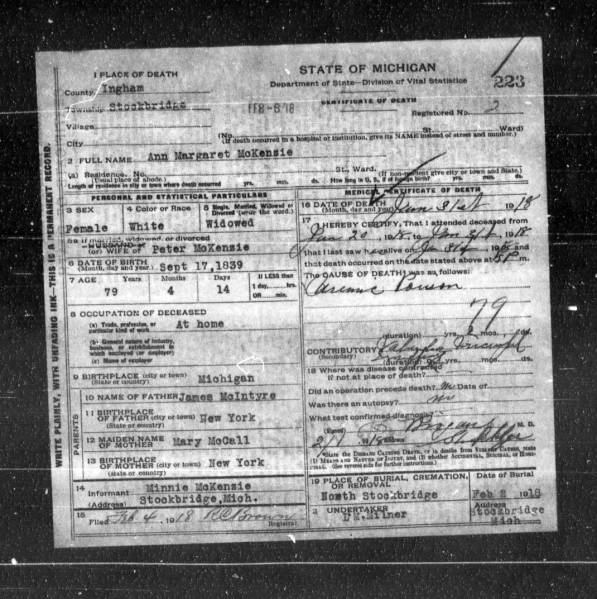 STATE OF MICHIGAN
Department of State—Division of Vital Statistics
223
CERTIFICATE OF DEATH
FEB -6 '18
Registered No. 2
1 PLACE OF DEATH
County Ingham
Township Stockbridge
Village
City
(No. St. Ward)
(If death occurred in a hospital or institution, give its NAME instead of street and number.)
2 FULL NAME Ann Margaret McKenzie
(a) Residence. No. St., Ward.
(Usual place of abode.) (If non-resident give city or town and State.)
Length of residence in city or town where death occurred yrs. mos. ds. How long in U. S., if of foreign birth? yrs. mos. ds.
WRITE PLAINLY, WITH UNFADING INK—THIS IS A PERMANENT RECORD.
PERSONAL AND STATISTICAL PARTICULARS
3 SEX
Female
4 Color or Race
White
5 Single, Married, Widowed or Divorced (write the word)
Widowed
5a If married, widowed, or divorced
HUSBAND of
(or) WIFE of Peter McKenzie
6 DATE OF BIRTH
(Month, day and year) Sept 17, 1839
7 AGE Years Months Days If LESS than
1 day, hrs.
OR min.
79 4 14
8 OCCUPATION OF DECEASED
(a) Trade, profession, or particular kind of work At home
(b) General nature of industry, business, or establishment in which employed (or employer)
(c) Name of employer
9 BIRTHPLACE (city or town)
(State or country) Michigan
PARENTS
10 NAME OF FATHER James McIntyre
11 BIRTHPLACE
OF FATHER (city or town) New York
(State or country)
12 MAIDEN NAME
OF MOTHER Mary McCall
13 BIRTHPLACE
OF MOTHER (city or town) New York
(State or country)
14
Informant Minnie McKenzie
Stockbridge, Mich.
15
Filed Feb 4, 1918 R C Brown
Registrar.
MEDICAL CERTIFICATE OF DEATH
16 DATE OF DEATH
(Month, day and year) Jan 31st 1918
17
I HEREBY CERTIFY, That I attended deceased from
Jan 20, 1918 to Jan 31st 1918
that I last saw h alive on Jan 31st 1918
that death occurred on the date stated above at 5 P m.
The CAUSE OF DEATH was as follows:
Poison
79
(duration) yrs. mos. ds.
CONTRIBUTORY
(duration) yrs. mos. ds.
18 Where was disease contracted
if not at place of death?
Did an operation precede death? No Date of
Was there an autopsy? no
What test confirmed diagnosis?
(Signed) M. D.
2/1 1918 (Address)
State the Disease Causing Death, or in deaths from Violent Causes, state (1) Means and Nature of Injury, and (2) whether Accidental, Suicidal, or Homicidal. (See reverse side for further instructions.)
19 PLACE OF BURIAL, CREMATION, OR REMOVAL
North Stockbridge
Date of Burial
Feb 2 1918
2 UNDERTAKER
Milner
Address
Stockbridge
Mich